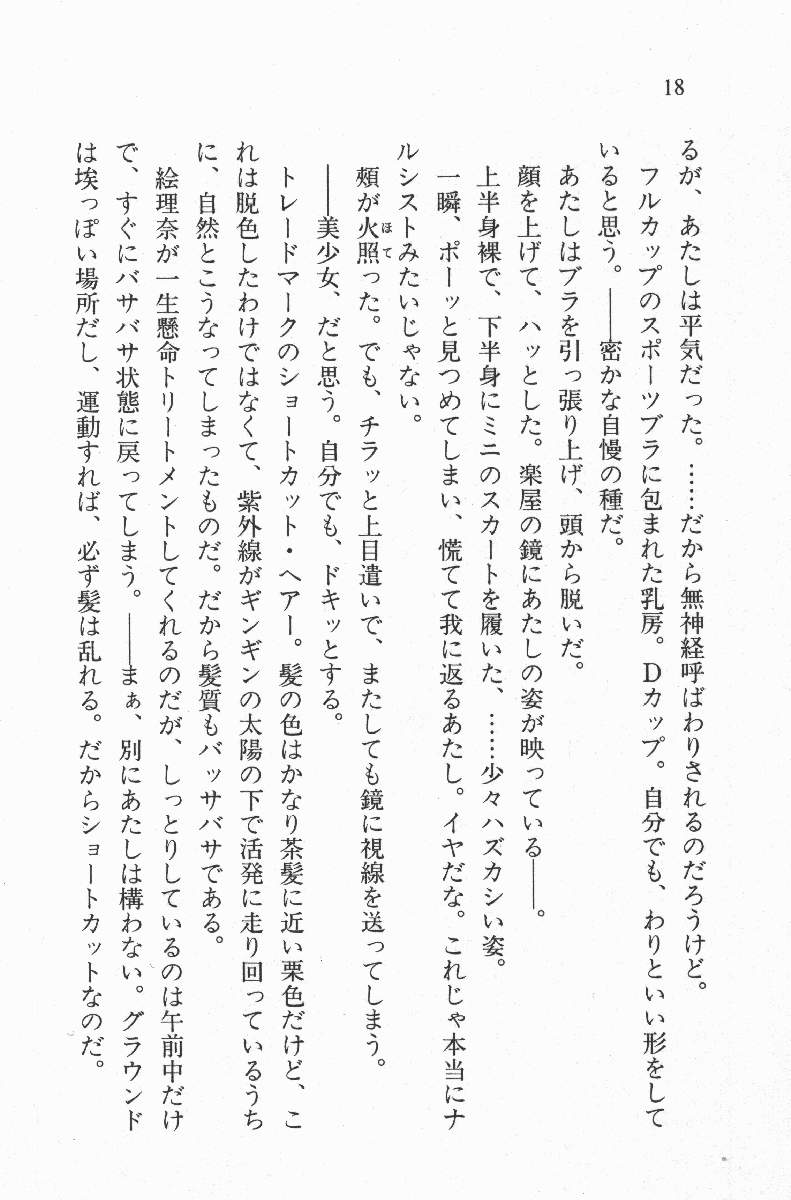 18
るが、あたしは平気だった。……だから無神経呼ばわりされるのだろうけど。
フルカップのスポーツブラに包まれた乳房。Dカップ。自分でも、わりといい形をして
いると思う。――密かな自慢の種だ。
あたしはブラを引っ張り上げ、頭から脱いだ。
顔を上げて、ハッとした。楽屋の鏡にあたしの姿が映っている――。
上半身裸で、下半身にミニのスカートを履いた、……少々ハズカシい姿。
一瞬、ポーッと見つめてしまい、慌てて我に返るあたし。イヤだな。これじゃ本当にナ
ルシストみたいじゃない。
頬が火照った。でも、チラッと上目遣いで、またしても鏡に視線を送ってしまう。
――美少女、だと思う。自分でも、ドキッとする。
トレードマークのショートカット・ヘアー。髪の色はかなり茶髪に近い栗色だけど、こ
れは脱色したわけではなくて、紫外線がギンギンの太陽の下で活発に走り回っているうち
に、自然とこうなってしまったものだ。だから髪質もバッサバサである。
絵理奈が一生懸命トリートメントしてくれるのだが、しっとりしているのは午前中だけ
で、すぐにバサバサ状態に戻ってしまう。――まぁ、別にあたしは構わない。グラウンド
は埃っぽい場所だし、運動すれば、必ず髪は乱れる。だからショートカットなのだ。